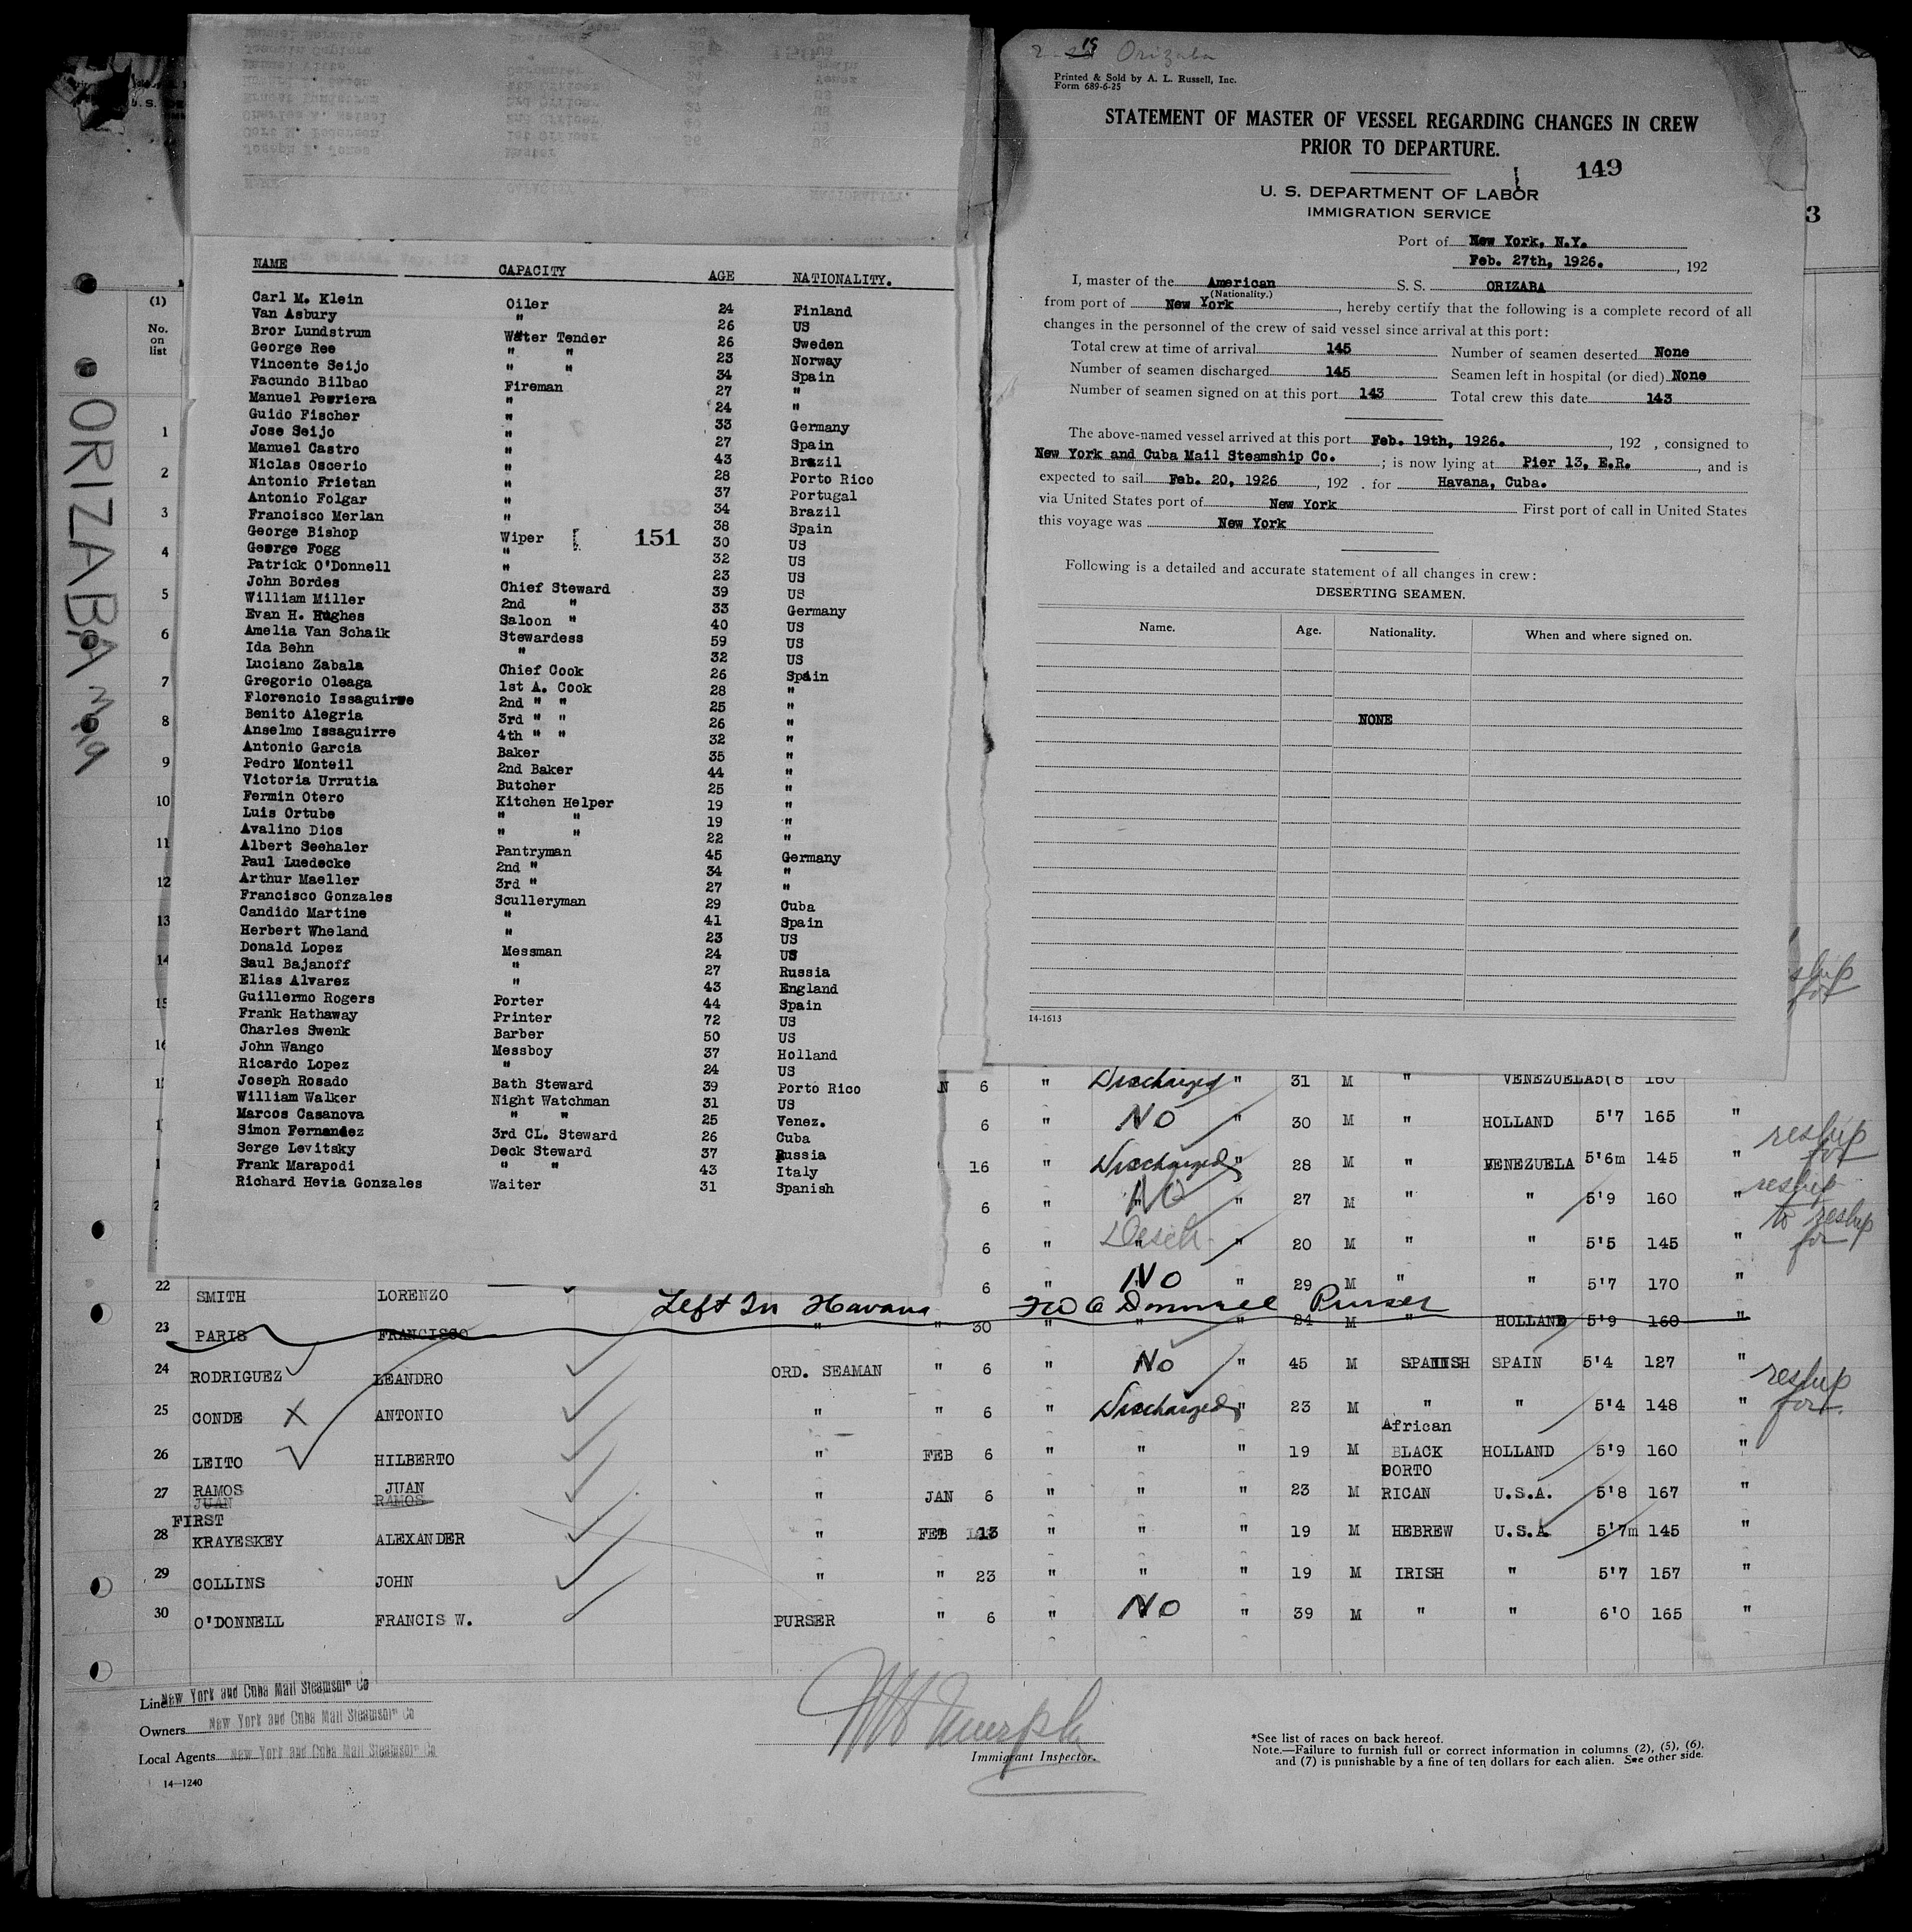 ORIZABA
(1)
No.
on
list
1
2
3
4
5
6
7
8
9
10
11
12
13
14
NAME CAPACITY AGE NATIONALITY.
Carl M. Klein Oiler 24 Finland
Van Asbury " 26 US
Bror Lundstrum Water Tender 26 Sweden
George Ree " " 23 Norway
Vincente Seijo " " 34 Spain
Facundo Bilbao Fireman 27 "
Manuel Perriera " 24 "
Guido Fischer " 33 Germany
Jose Seijo " 27 Spain
Manuel Castro " 43 Brazil
Niclas Oscerio " 28 Porto Rico
Antonio Frietan " 37 Portugal
Antonio Folgar " 34 Brazil
Francisco Merlan " 38 Spain
George Bishop Wiper 30 US
151
George Fogg " 32 US
Patrick O'Donnell " 23 US
John Bordes Chief Steward 39 US
William Miller 2nd " 33 Germany
Evan H. Hughes Saloon " 40 US
Amelia Van Schaik Stewardess 59 US
Ida Behn " 32 US
Luciano Zabala Chief Cook 26 Spain
Gregorio Oleaga 1st A. Cook 28 "
Florencio Issaguirre 2nd " " 25 "
Benito Alegria 3rd " " 26 "
Anselmo Issaguirre 4th " " 32 "
Antonio Garcia Baker 35 "
Pedro Monteil 2nd Baker 44 "
Victoria Urrutia Butcher 25 "
Fermin Otero Kitchen Helper 19 "
Luis Ortube " " 19 "
Avalino Dios " " 22 "
Albert Seehaler Pantryman 45 Germany
Paul Luedecke 2nd " 34 "
Arthur Maeller 3rd " 27 "
Francisco Gonzales Sculleryman 29 Cuba
Candido Martine " 41 Spain
Herbert Wheland " 23 US
Donald Lopez Messman 24 US
Saul Bajanoff " 27 Russia
Elias Alvarez " 43 England
Guillermo Rogers Porter 44 Spain
Frank Hathaway Printer 72 US
Charles Swenk Barber 50 US
John Wango Messboy 37 Holland
Ricardo Lopez " 24 US
Joseph Rosado Bath Steward 39 Porto Rico
William Walker Night Watchman 31 US
Marcos Casanova " " 25 Venez.
Simon Fernandez 3rd CL. Steward 26 Cuba
Serge Levitsky Deck Steward 37 Russia
Frank Marapodi " " 43 Italy
Richard Hevia Gonzales Waiter 31 Spanish
Orizaba
Printed & Sold by A. L. Russell, Inc.
Form 689-6-25
STATEMENT OF MASTER OF VESSEL REGARDING CHANGES IN CREW
PRIOR TO DEPARTURE.
149
U. S. DEPARTMENT OF LABOR
IMMIGRATION SERVICE
3
Port of New York, N.Y.
Feb. 27th, 1926. , 192
I, master of the American S. S. ORIZABA
(Nationality.)
from port of New York, hereby certify that the following is a complete record of all
changes in the personnel of the crew of said vessel since arrival at this port:
Total crew at time of arrival 145 Number of seamen deserted None
Number of seamen discharged 145 Seamen left in hospital (or died) None
Number of seamen signed on at this port 143 Total crew this date 143
The above-named vessel arrived at this port Feb. 19th, 1926. , 192 , consigned to
New York and Cuba Mail Steamship Co. ; is now lying at Pier 13, E.R. , and is
expected to sail Feb. 20, 1926 , 192 . for Havana, Cuba.
via United States port of New York First port of call in United States
this voyage was New York
Following is a detailed and accurate statement of all changes in crew:
DESERTING SEAMEN.
Name. Age. Nationality. When and where signed on.
NONE
14-1613
6 " Discharged " 31 M " VENEZUELA 5'8 160
6 " NO " 30 M " HOLLAND 5'7 165 " reship for
16 " Discharged " 28 M " VENEZUELA 5'6m 145 " reship
6 " NO " 27 M " " 5'9 160 " to reship for
6 " Disch. " 20 M " " 5'5 145 "
22 SMITH LORENZO 6 " NO " 29 M " " 5'7 170 "
Left In Havana FW O Donnell Purser
23 PARIS FRANCISCO " " 30 " " " 24 M " HOLLAND 5'9 160 "
24 RODRIGUEZ LEANDRO ORD. SEAMAN " 6 " No " 45 M SPANISH SPAIN 5'4 127 " reship for
25 CONDE X ANTONIO " " 6 " Discharged " 23 M " " 5'4 148 "
African
26 LEITO HILBERTO " FEB 6 " " " 19 M BLACK HOLLAND 5'9 160 "
PORTO
27 RAMOS JUAN " JAN 6 " " " 23 M RICAN U.S.A. 5'8 167 "
JUAN RAMOS
FIRST
28 KRAYESKEY ALEXANDER " FEB 13 " " " 19 M HEBREW U.S.A 5'7m 145 "
29 COLLINS JOHN " " 23 " " " 19 M IRISH " 5'7 157 "
30 O'DONNELL FRANCIS W. PURSER " 6 " NO " 39 M " " 6'0 165 "
Line New York and Cuba Mail Steamship Co
Owners New York and Cuba Mail Steamship Co
Local Agents New York and Cuba Mail Steamship Co
14—1240
Immigrant Inspector.
*See list of races on back hereof.
Note.—Failure to furnish full or correct information in columns (2), (5), (6),
and (7) is punishable by a fine of ten dollars for each alien. See other side.